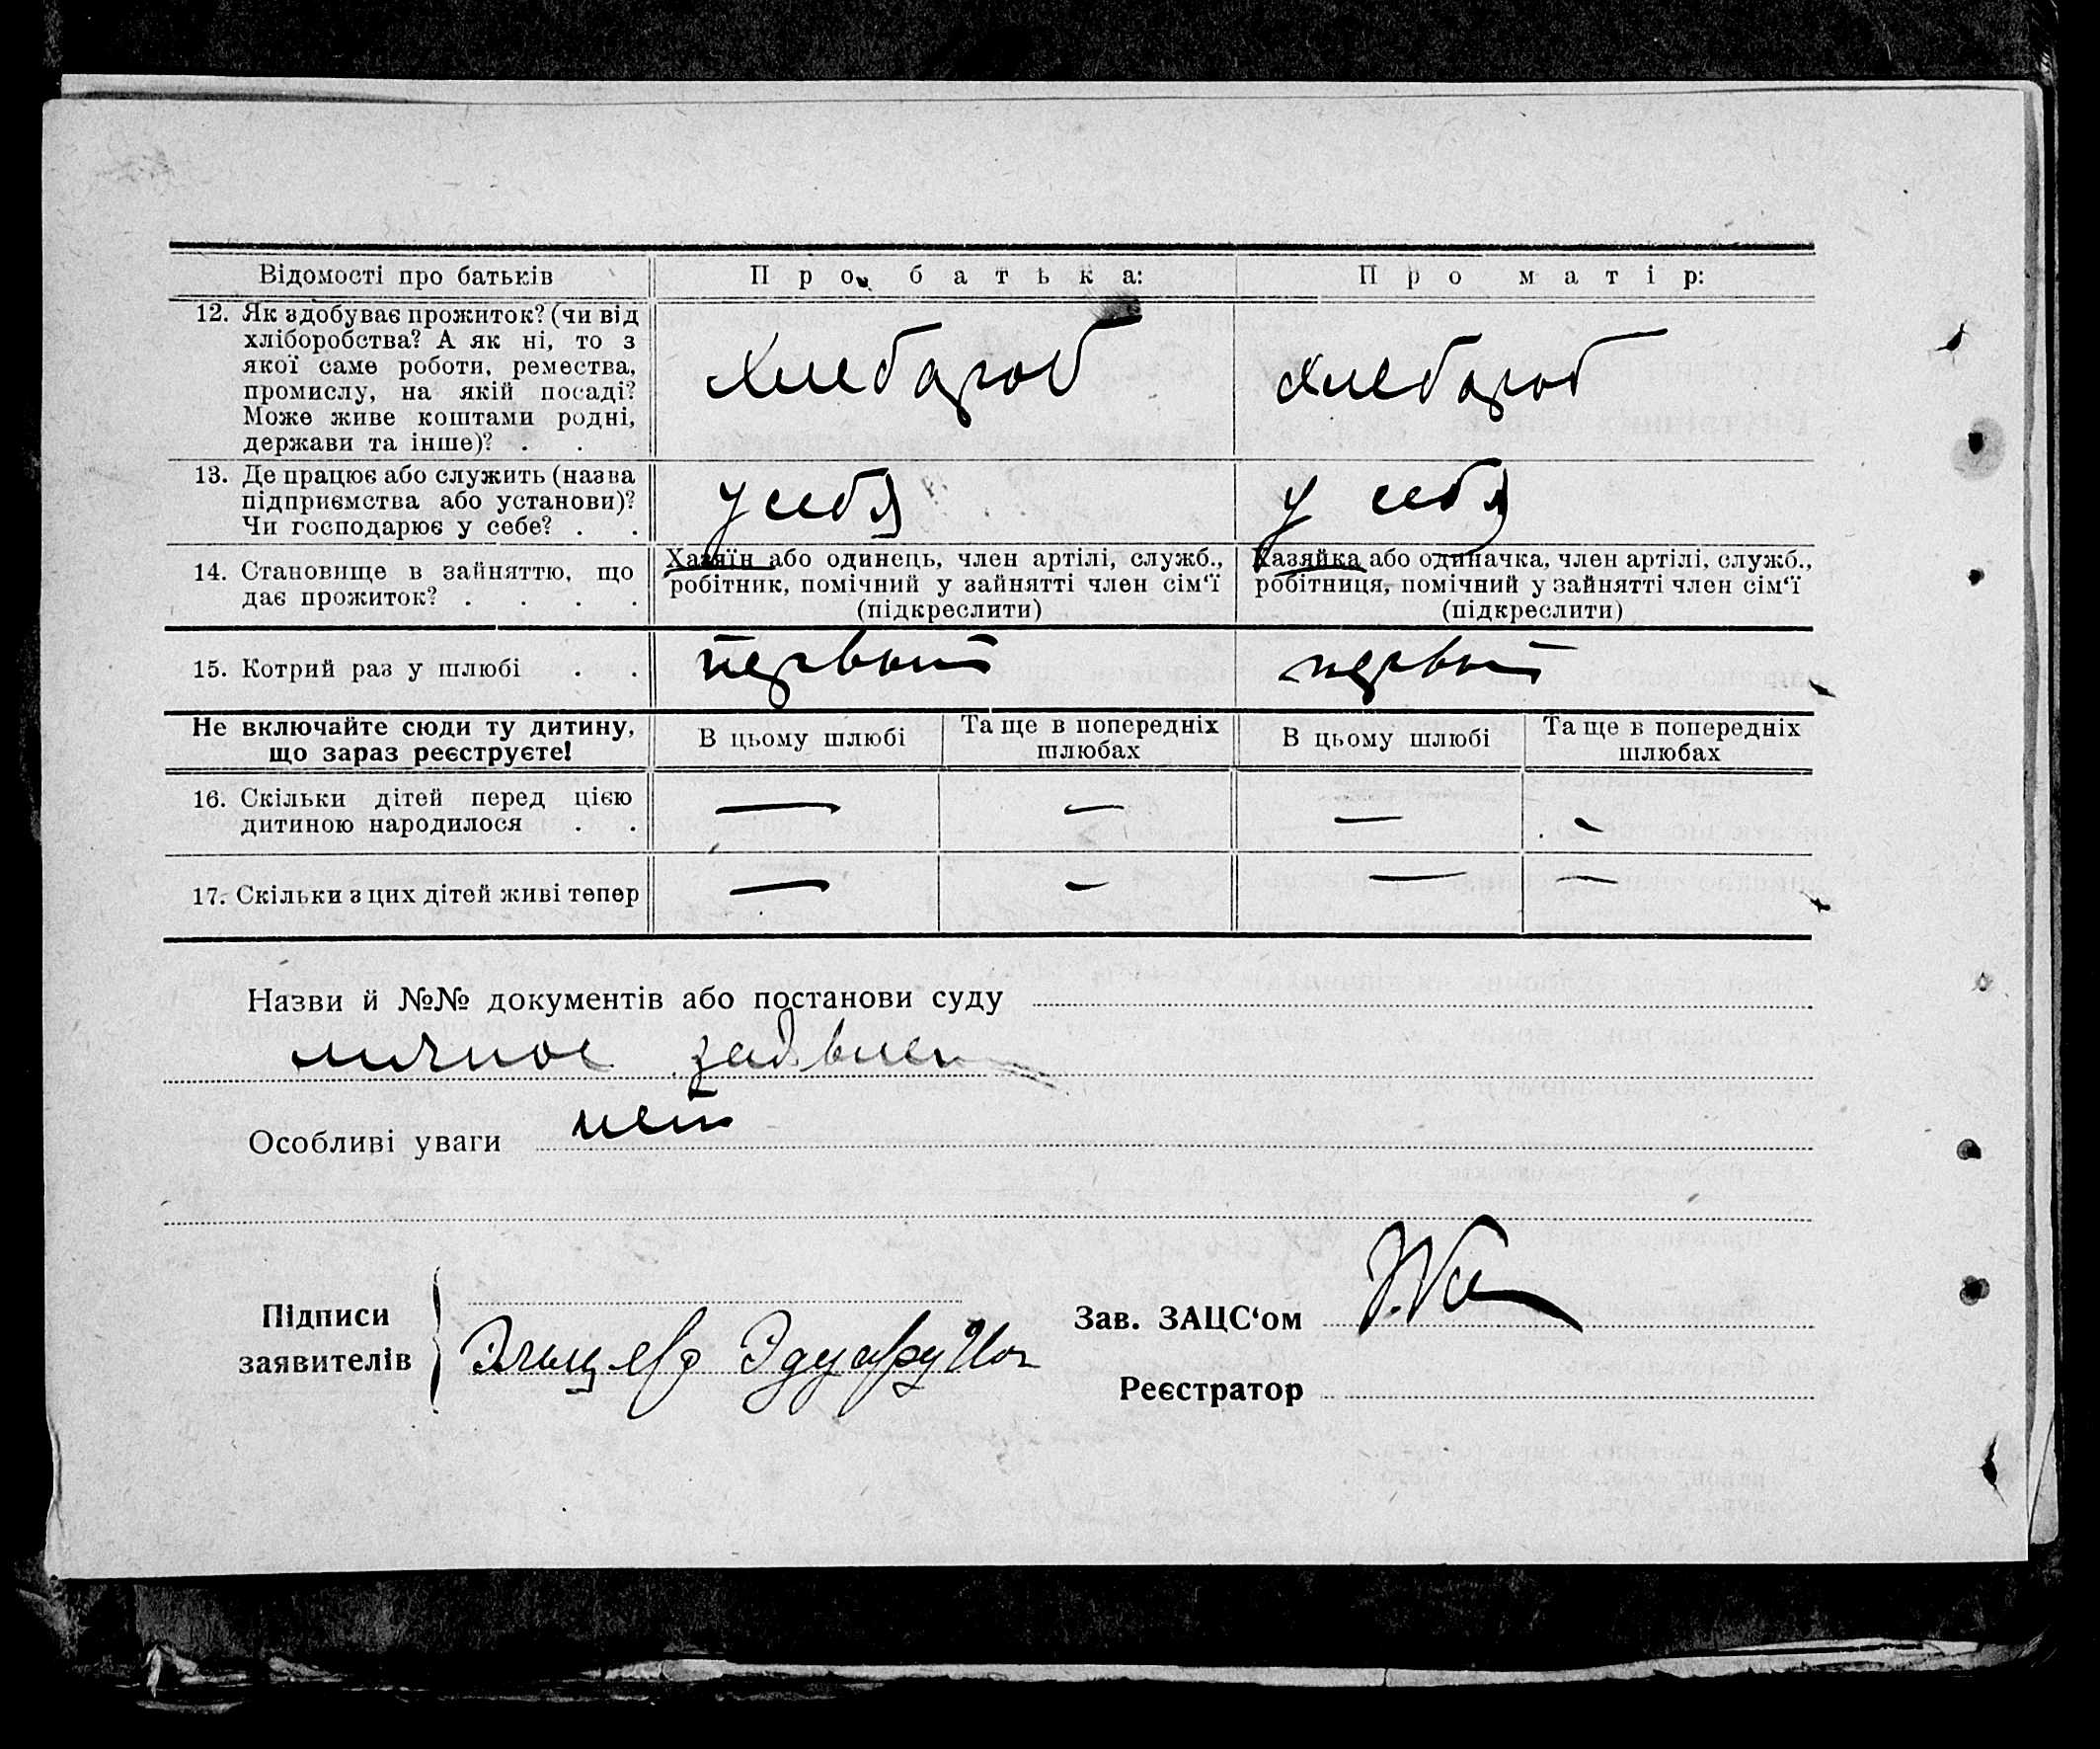 Відомості про батьків
Про батька:
Про матір:
12. Як здобуває прожиток? (чи від
хліборобства? А як ні, то з
якої саме роботи, ремества,
промислу, на якій посаді?
Може живе коштами родні,
держави та інше)? . .
Хлебороб
Хлебороб
13. Де працює або служить (назва
підприємства або установи)?
Чи господарює у себе? . .
у себя
у себя
14. Становище в зайняттю, що
дає прожиток? . . . .
Хазяїн або одинець, член артілі, служб.,
робітник, помічний у зайнятті член сім‘ї
(підкреслити)
Хазяйка або одиначка, член артілі, служб.,
робітниця, помічний у зайнятті член сім‘ї
(підкреслити)
15. Котрий раз у шлюбі . .
первый
первый
Не включайте сюди ту дитину,
що зараз реєструєте!
В цьому шлюбі
Та ще в попередніх
шлюбах
В цьому шлюбі
Та ще в попередніх
шлюбах
16. Скільки дітей перед цією
дитиною народилося . .
—
—
—
—
17. Скільки з цих дітей живі тепер
—
—
—
—
Назви й №№ документів або постанови суду
личное заявлен
Особливі уваги нет
Підписи
заявителів
Эдуард
Зав. ЗАЦС‘ом
Реєстратор